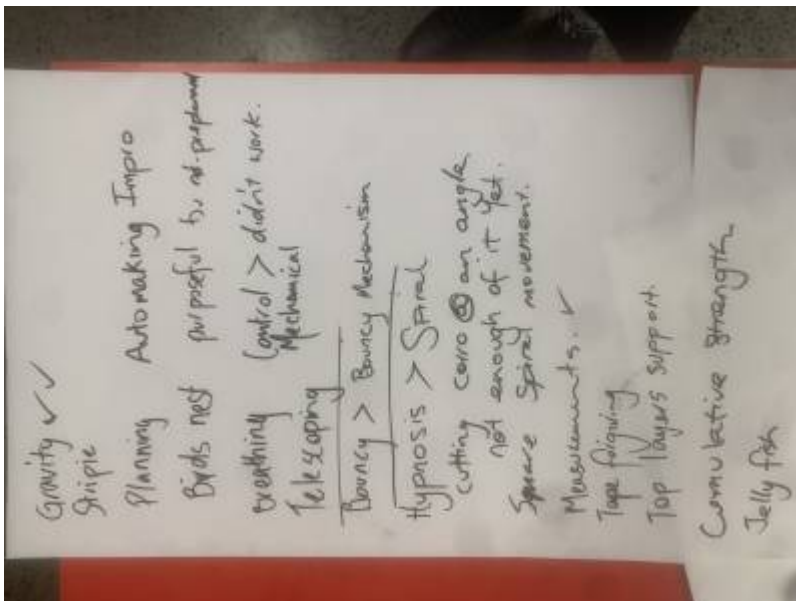 Gravity ✓✓
Stripie
Planning Automaking Impro
Birds nest purposeful bu not-preplanned
Breathing Control > didn't work.
Telescoping Mechanical
Bouncy > Bouncy Mechanism
Hypnosis > Spiral
cutting corro @ an angle
not enough of it yet.
Square spiral movement.
Measurements. ✓
Tape
Top layers support.
Comulative strength
Jelly fish